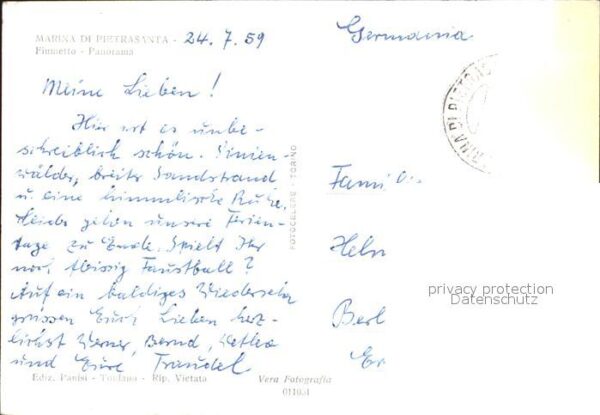 MARINA DI PIETRASANTA - 24.7.59
Fiumetto - Panorama
Germania
Meine Lieben!
Hier ist es unbe-
schreiblich schön. Pinien-
wälder, breiter Sandstrand
u. eine himmlische Ruhe.
Leider gehen unsere Ferien-
tage zu Ende. Spielt Ihr
noch fleissig Faustball?
Auf ein baldiges Wiedersehn
grüssen Euch Lieben herz-
lichst Werner, Bernd,
und Eure Traudel
FOTOCELERE - TORINO
MARINA DI PIETRAS
Fami
Helm
privacy protection
Datenschutz
Berl
Er
Ediz. Panisi - Tonfano - Rip. Vietata
Vera Fotografia